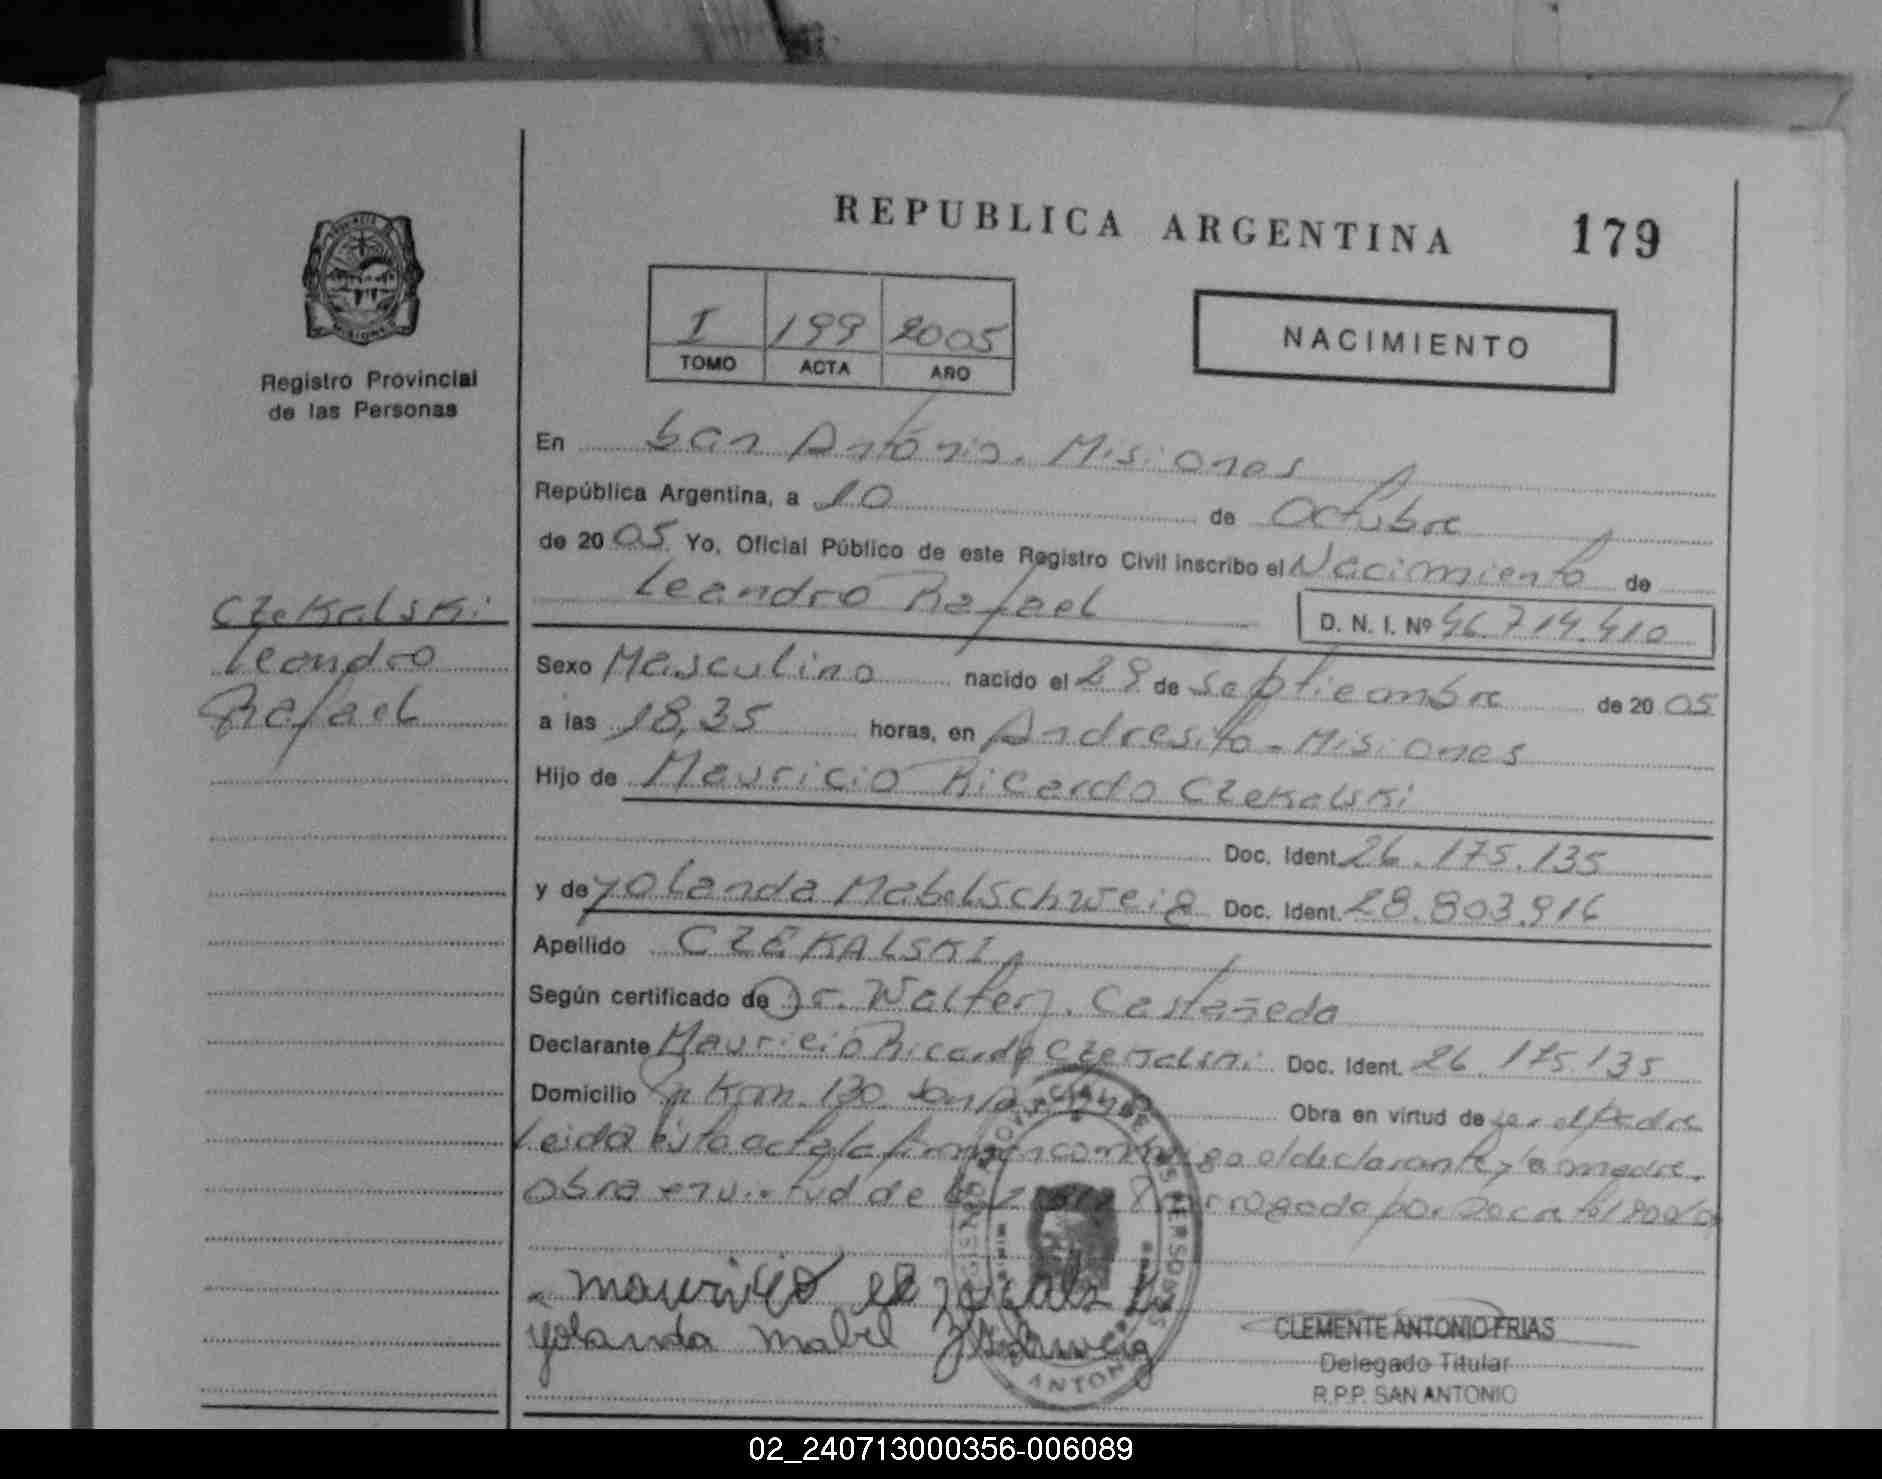 REPUBLICA ARGENTINA 179
I 199 2005
TOMO ACTA AÑO
NACIMIENTO
Registro Provincial
de las Personas
En San Antonio. Misiones
República Argentina, a 10 de Octubre
de 2005 Yo, Oficial Público de este Registro Civil inscribo el Nacimiento de
Leandro Rafael D. N. I. Nº 46.714.410
Czekalski
Leandro
Rafael
Sexo Masculino nacido el 29 de Septiembre de 2005
a las 18,35 horas, en Andresito - Misiones
Hijo de Mauricio Ricardo Czekalski
Doc. Ident. 26.175.135
y de Yolanda Mabel Schweig Doc. Ident. 28.803.916
Apellido CZEKALSKI
Según certificado de Dr. Walter J. Castañeda
Declarante Mauricio Ricardo Czekalski Doc. Ident. 26.175.135
Domicilio En Km. 130 San Obra en virtud de ser el Padre
Leida esta acta la firman conmigo el declarante y la madre.
Obra en virtud de prorrogado por Decreto
mauricio
yolanda mabel Schweig
CLEMENTE ANTONIO FRIAS
Delegado Titular
R.P.P. SAN ANTONIO
02_240713000356-006089